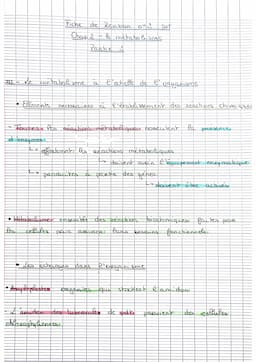 Fiche de révision n°1 SVT
Chap 2 - le métabolisme
Partie 2
III - Le métabolisme à l'échelle de l'organisme
• Eléments nécessaires à l'établissement des réactions chimiques
- Toutes les réactions métaboliques nécessitent la présence
d'enzymes
↳ effectuent les réactions métaboliques
↳ doivent avoir l'équipement enzymatique
↳ produites à partir des gènes
↳ doivent être activés
• Métabolisme: ensemble des réactions biochimiques faites par
les cellules pour assurer leurs besoins fonctionnels.
• Les échanges dans l'organisme
• Amyloplastes: organites qui stockent l'amidon
• L'amidon des de provient des cellules
chlorophylliennes.